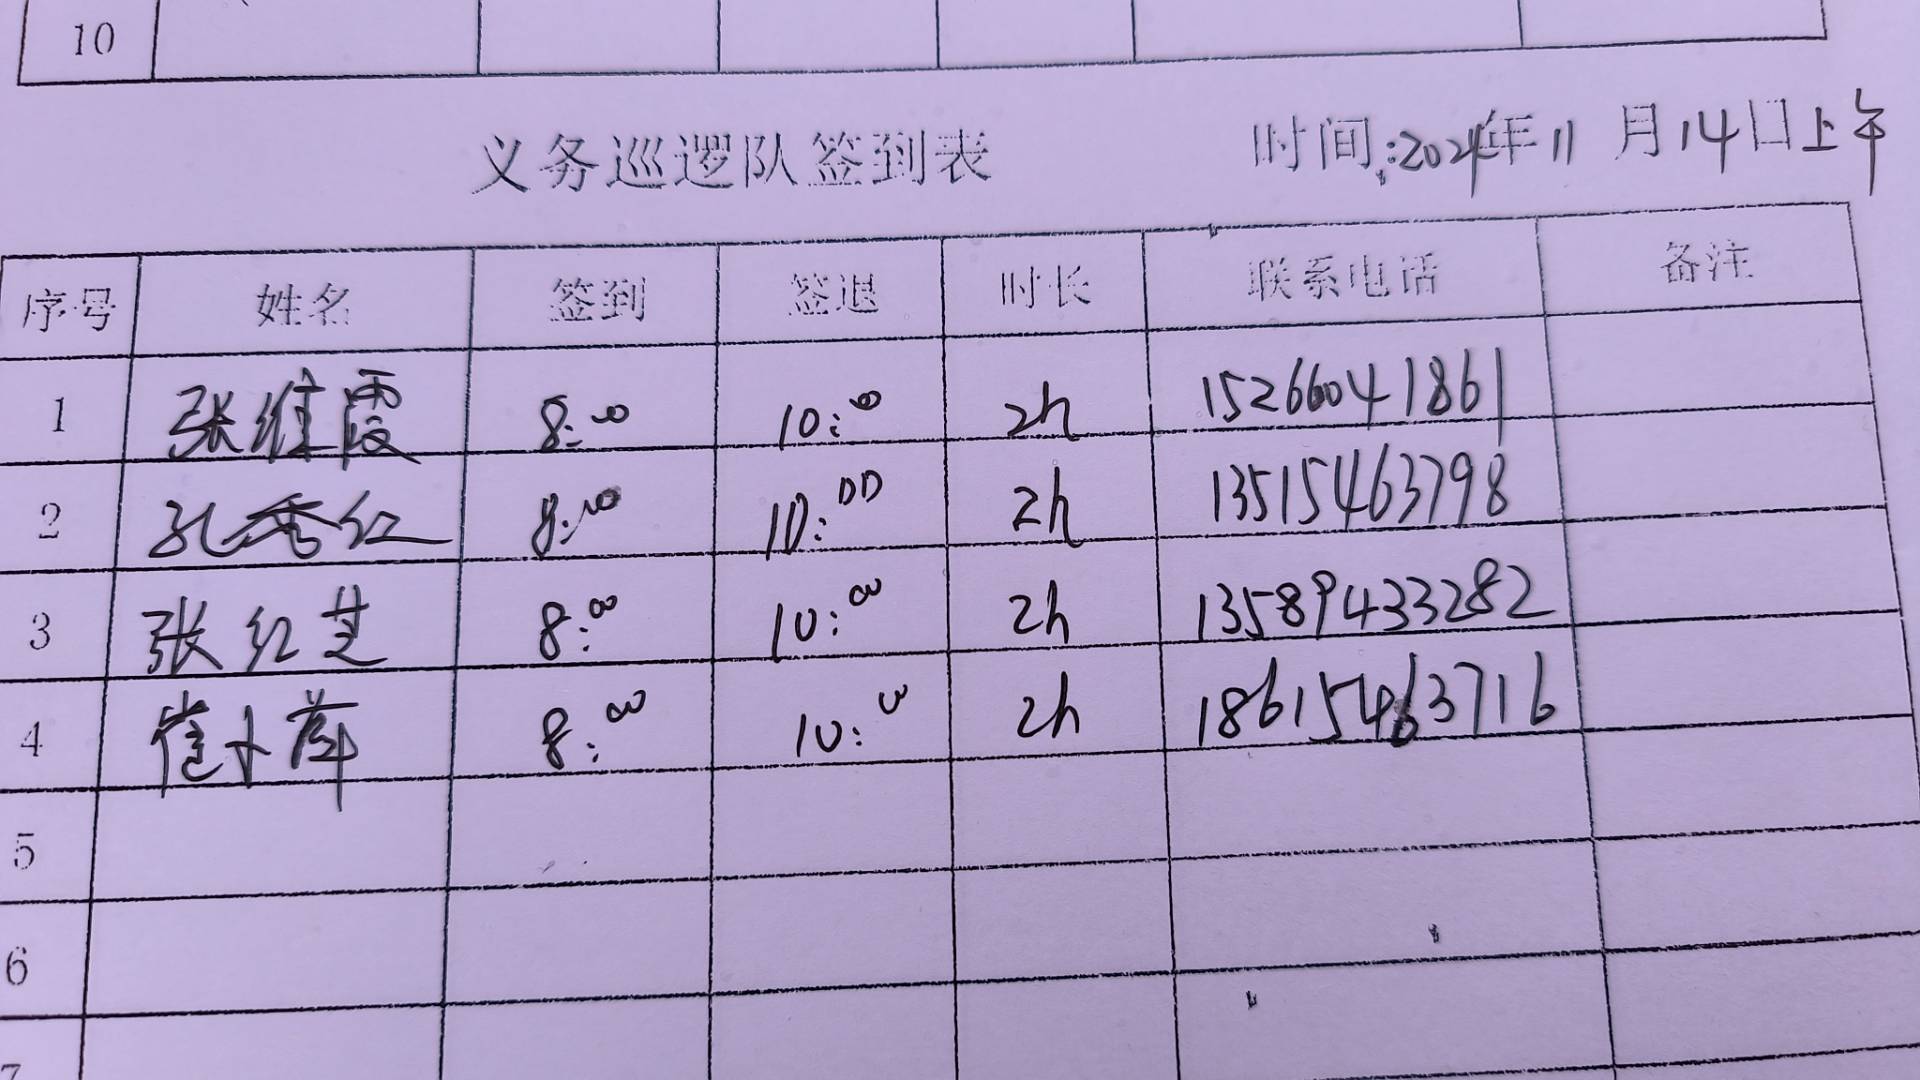 10
义务巡逻队签到表 时间:2024年11月14日上午
序号 姓名 签到 签退 时长 联系电话 备注
1 张维霞 8:00 10:00 2h 15266041861
2 孔秀红 8:00 10:00 2h 13515463798
3 张红芝 8:00 10:00 2h 13589433282
4 崔小萍 8:00 10:00 2h 18615463716
5
6
7